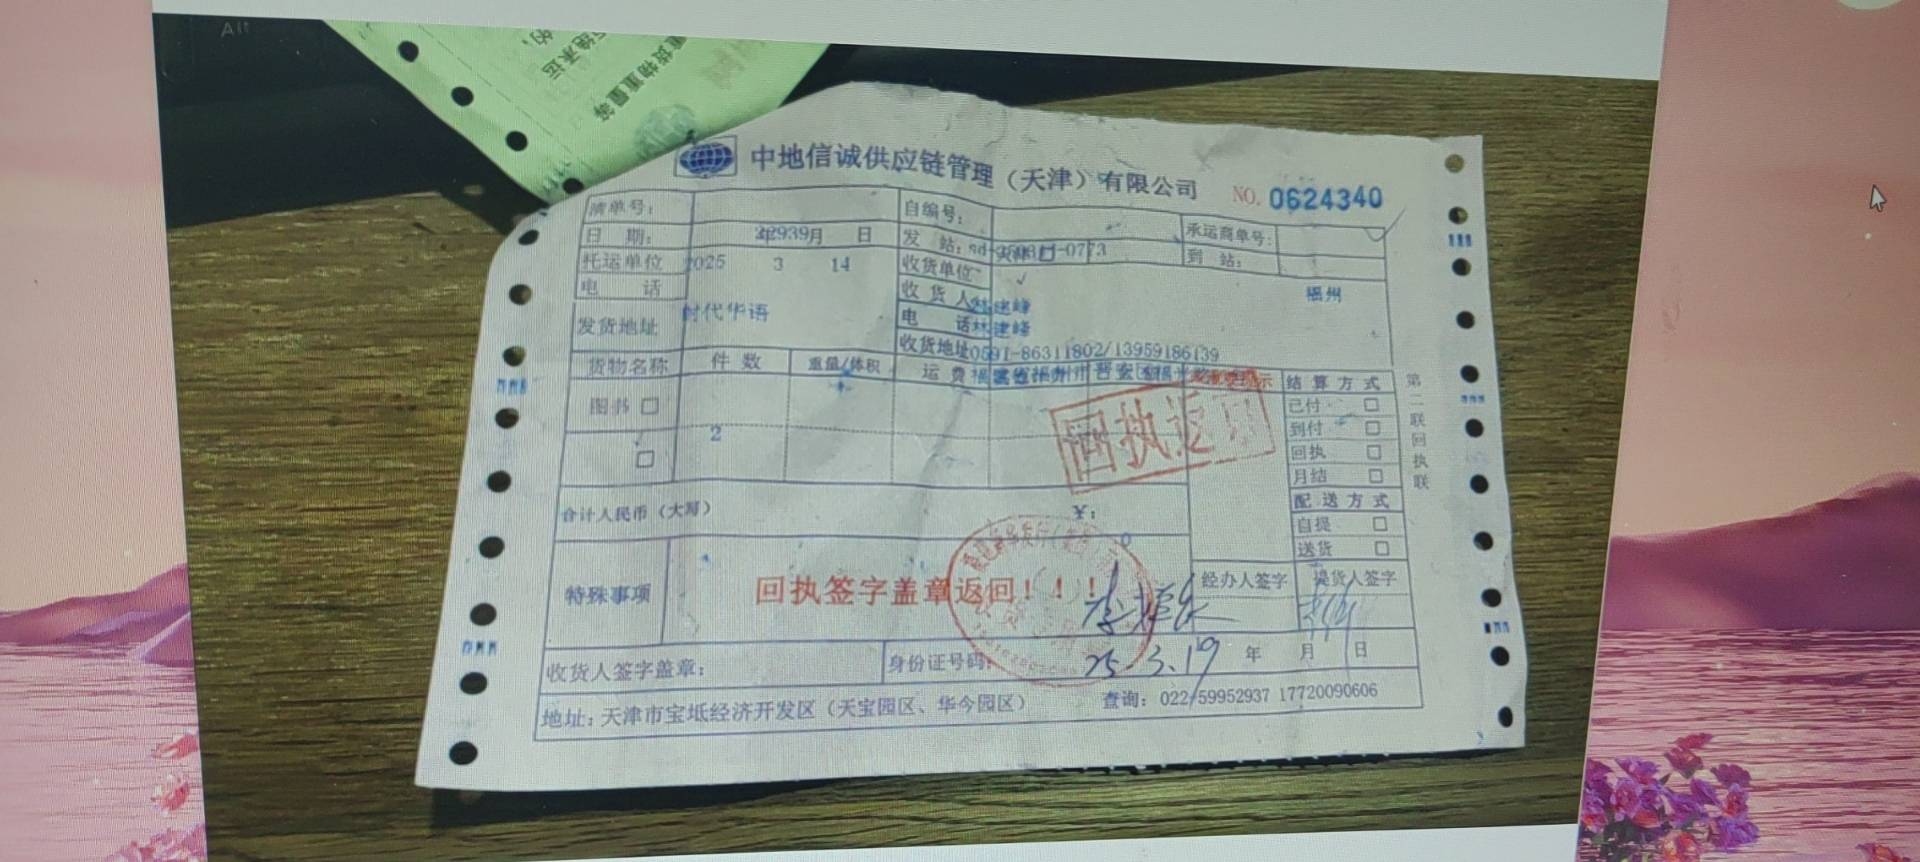 重货物重量等
拒绝承运
的,
中地信诚供应链管理（天津）有限公司
NO. 0624340
清单号：
自编号：
承运商单号：
日 期： 年 月 日
发 站：
到 站：
托运单位
2025 3 14
收货单位
福州
电 话
收货人
林建峰
发货地址
时代华语
电 话
林建峰
收货地址
0591-86311802/13959186139
货物名称
件 数
重量/体积
运 费
福建省福州市晋安区
结算方式
图书 □
已付 □
到付 □
2
回执 □
□
月结 □
回执返回
第二联回执联
合计人民币（大写）
￥：
0
配送方式
自提 □
送货 □
特殊事项
回执签字盖章返回！！！
经办人签字
提货人签字
收货人签字盖章：
身份证号码：
25.3.19
年 月 日
地址：天津市宝坻经济开发区（天宝园区、华今园区）
查询：022-59952937 17720090606